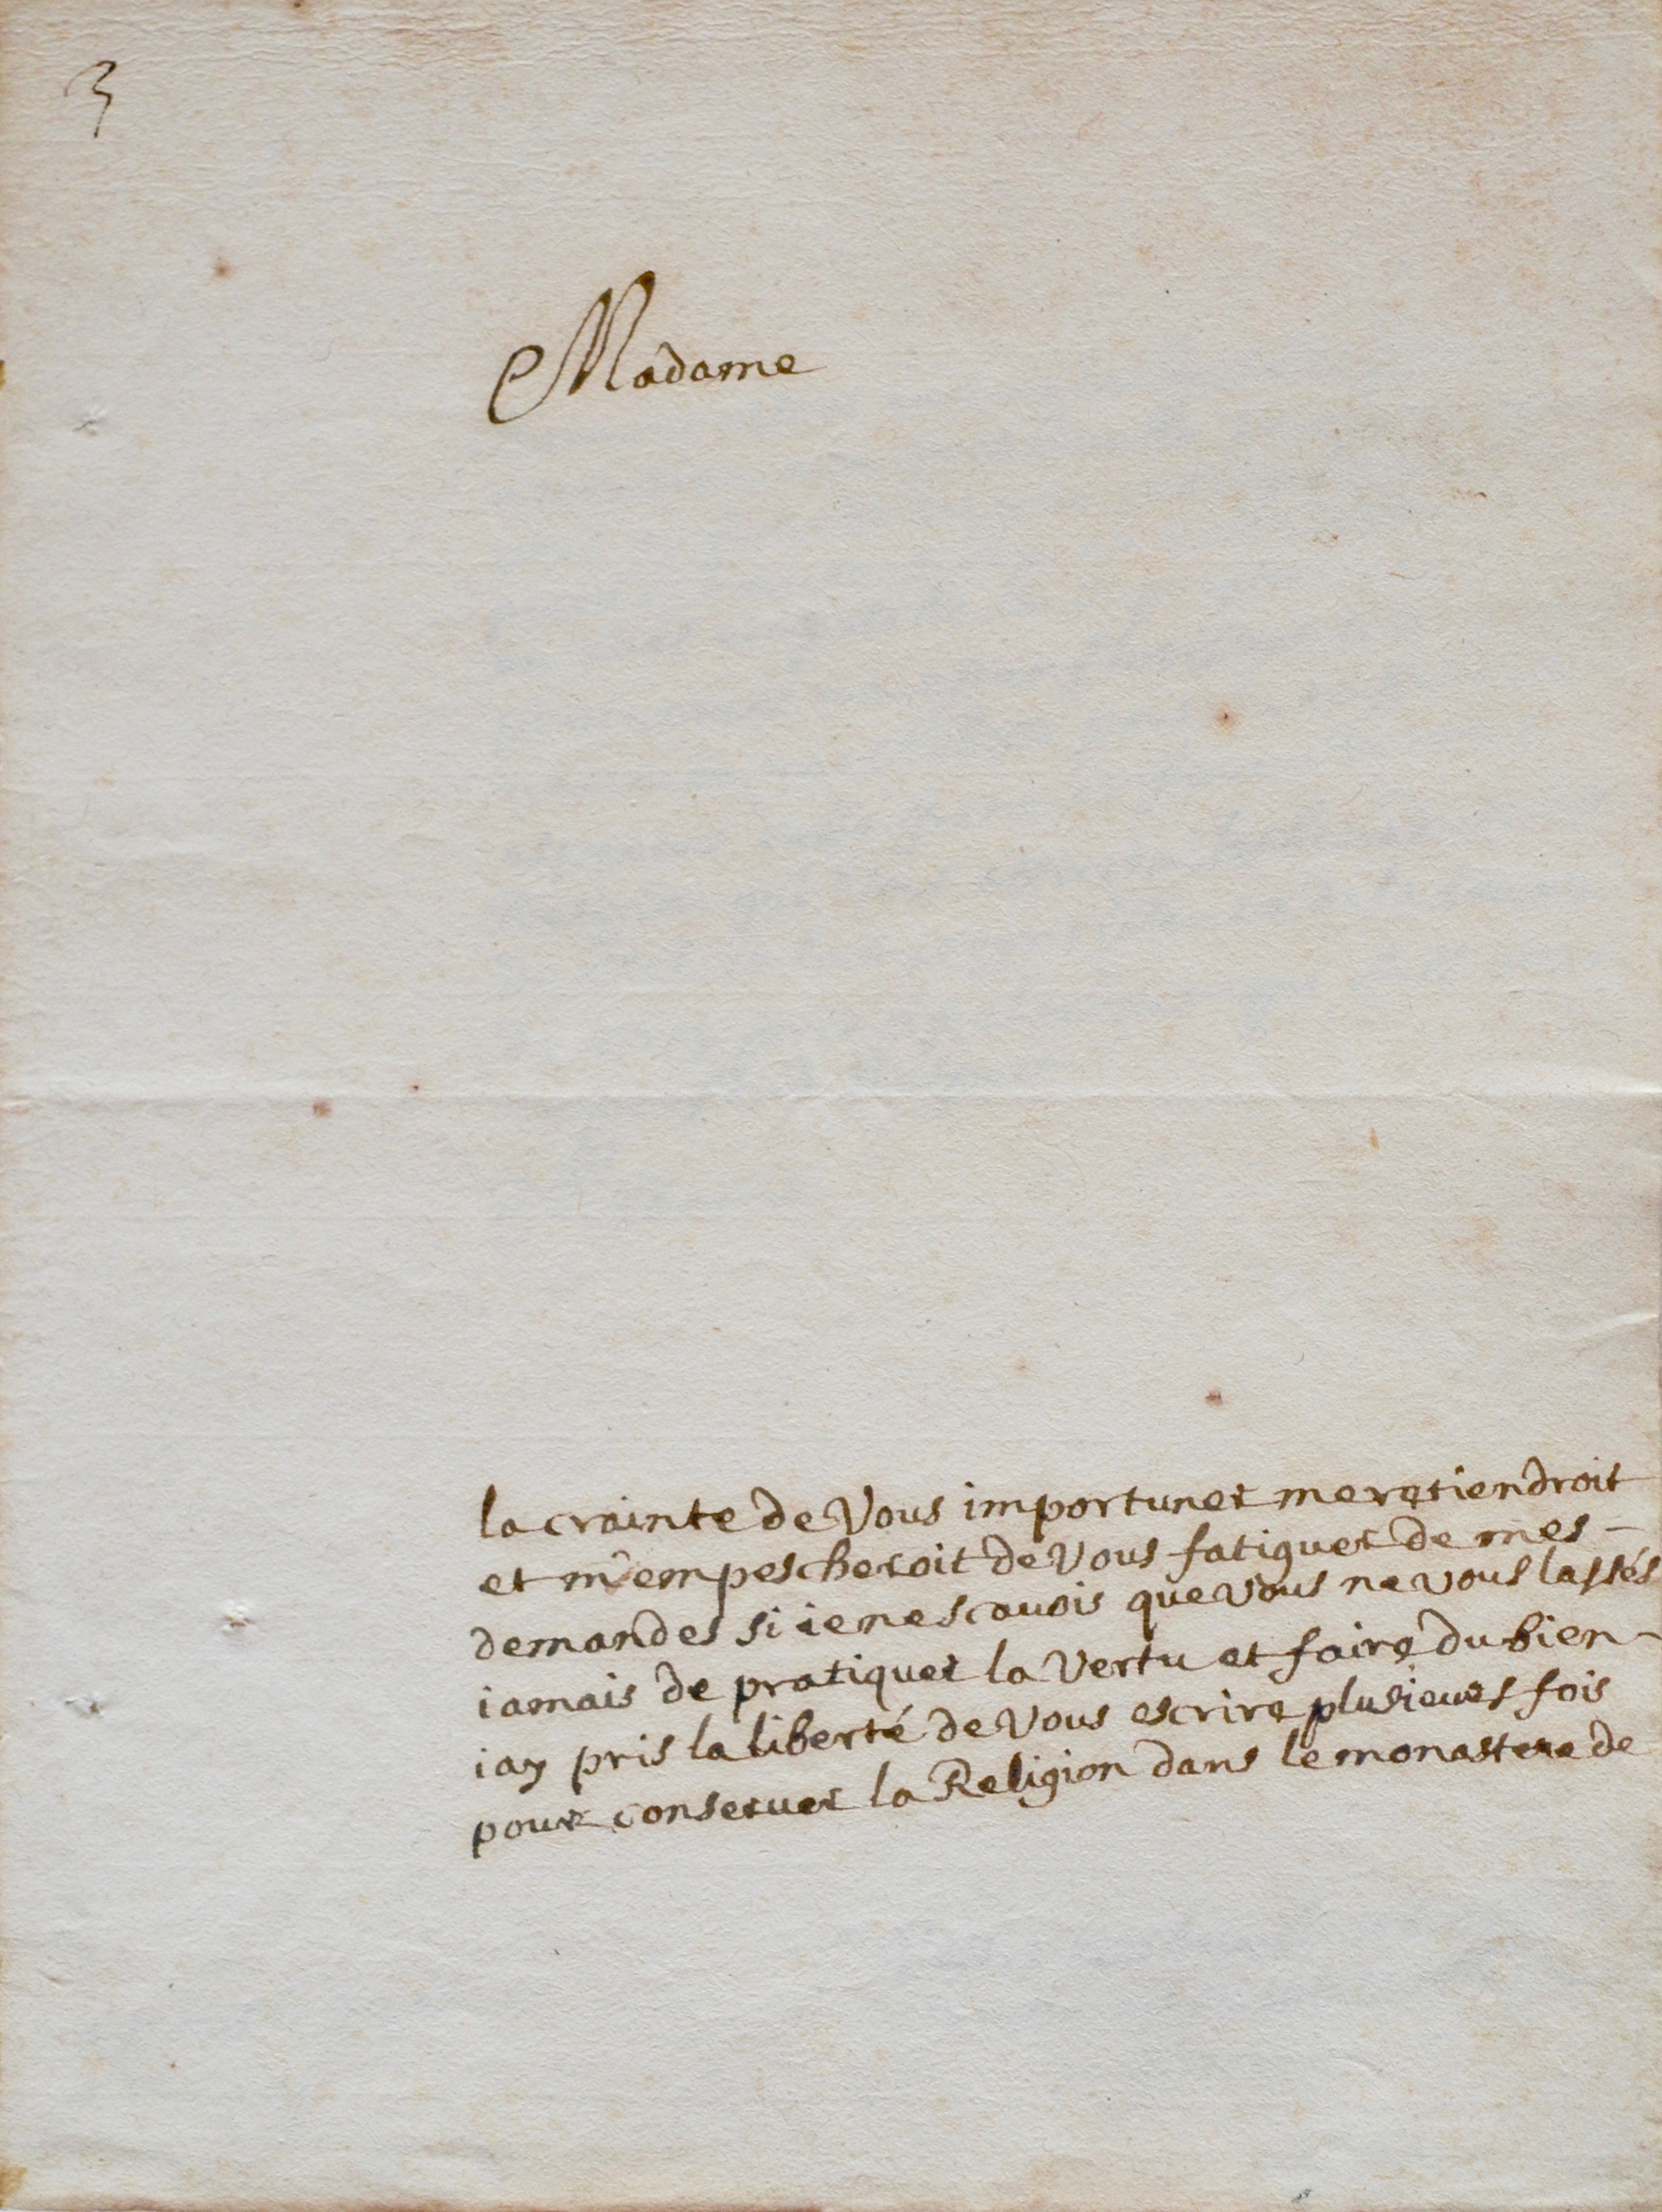 3
Madame
la crainte de Vous importuner me retiendroit
et m'empescheroit de Vous fatiguer de mes -
demandes si ie ne scauois que vous ne vous lassés
iamais de pratiquer la Vertu et faire du bien -
iay pris la liberté de Vous escrire plusieurs fois
pour conseruer la Religion dans le monastere de